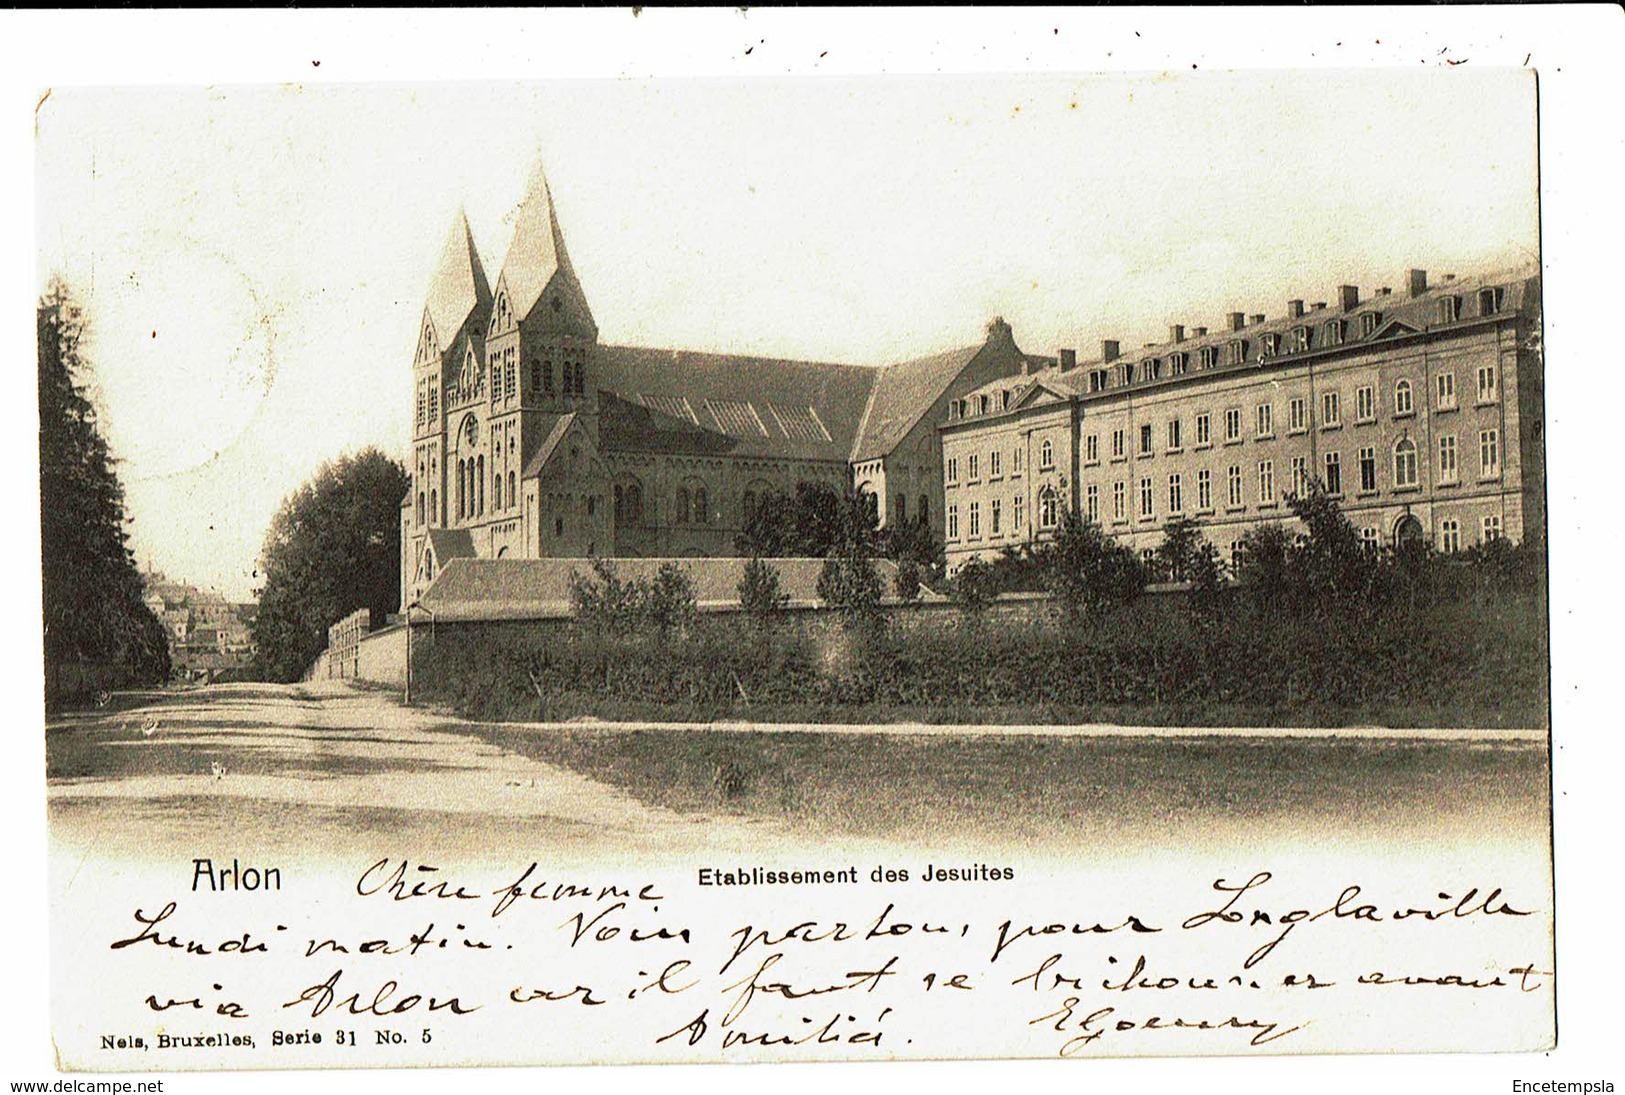 Arlon Chère femme Etablissement des Jesuites
Lundi matin. Nous partons pour Longlaville
via Arlon car il faut se bichonner avant
Nels, Bruxelles, Serie 31 No. 5 Amitié.
www.delcampe.net Encetempsla